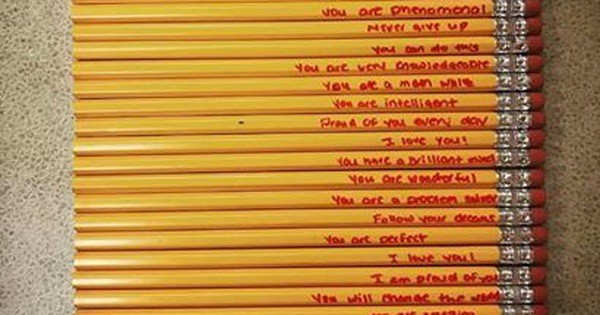 you are phenomenal
Never give up
You can do this
You are very knowledgeable
You are a math whiz
You are intelligent
Proud of you every day
I love you!
You have a brilliant mind
You are wonderful
You are a problem solver
Follow your dreams
You are perfect
I love you!
I am proud of you
You will change the world